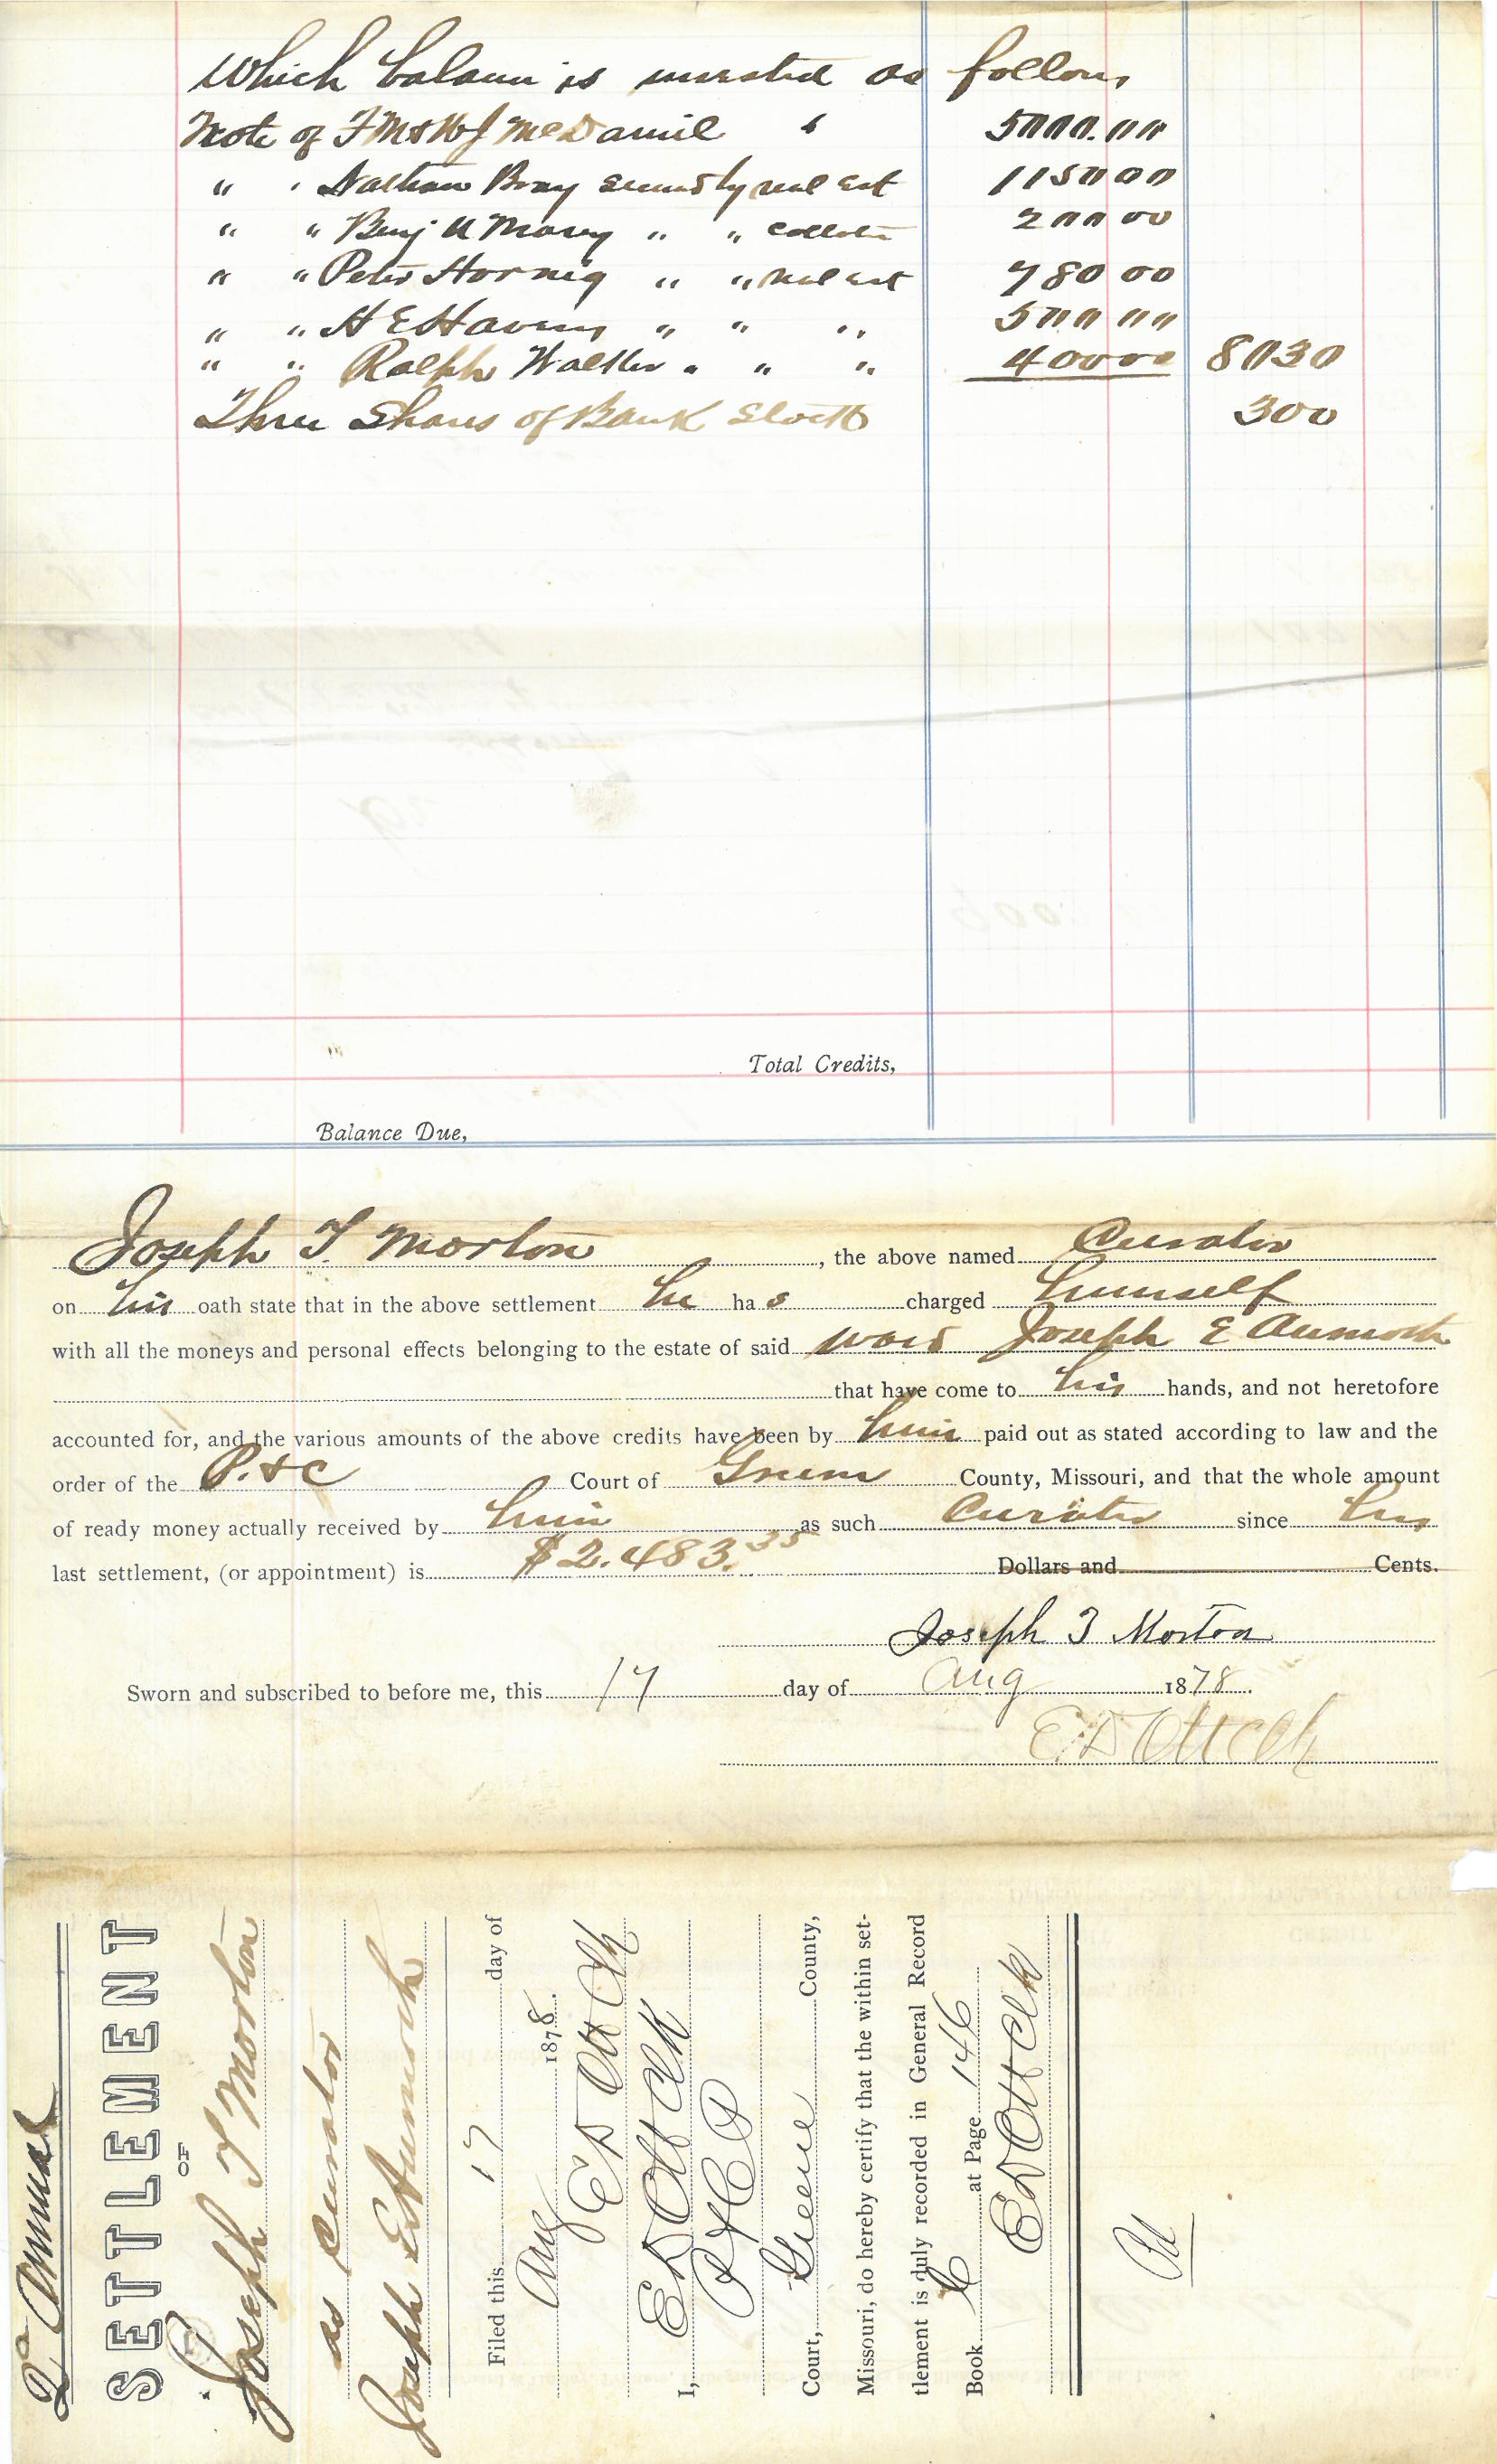 Which balance is invested as follows
Note of F M & W J McDaniel " 5000.00
" " Nathan Bray security real est 1150 00
" " Benj U Massey " " collate 200 00
" " Peter Hornig " " real est 780 00
" " H E Havens " " " 500 00
" " Ralph Walker " " " 400 00 8030
Three Shares of Bank Stock 300
Total Credits,
Balance Due,
Joseph T. Morton, the above named Curator
on his oath state that in the above settlement he has charged himself
with all the moneys and personal effects belonging to the estate of said ward Joseph E Aumock
that have come to his hands, and not heretofore
accounted for, and the various amounts of the above credits have been by him paid out as stated according to law and the
order of the P. & C Court of Greene County, Missouri, and that the whole amount
of ready money actually received by him as such Curator since his
last settlement, (or appointment) is $2.483.35 Dollars and Cents.
Joseph T Morton
Sworn and subscribed to before me, this 17 day of Aug 1878.
E D Ott Clk
2d Annual
SETTLEMENT
OF
Joseph T Morton
as Curator
Joseph E Aumock
Filed this 17 day of
Aug 1878.
E D Ott Clk
I, E D Ott Clk
P & C P
Court, Greene County,
Missouri, do hereby certify that the within set-
tlement is duly recorded in General Record
Book C at Page 146
E D Ott Clk
Pd